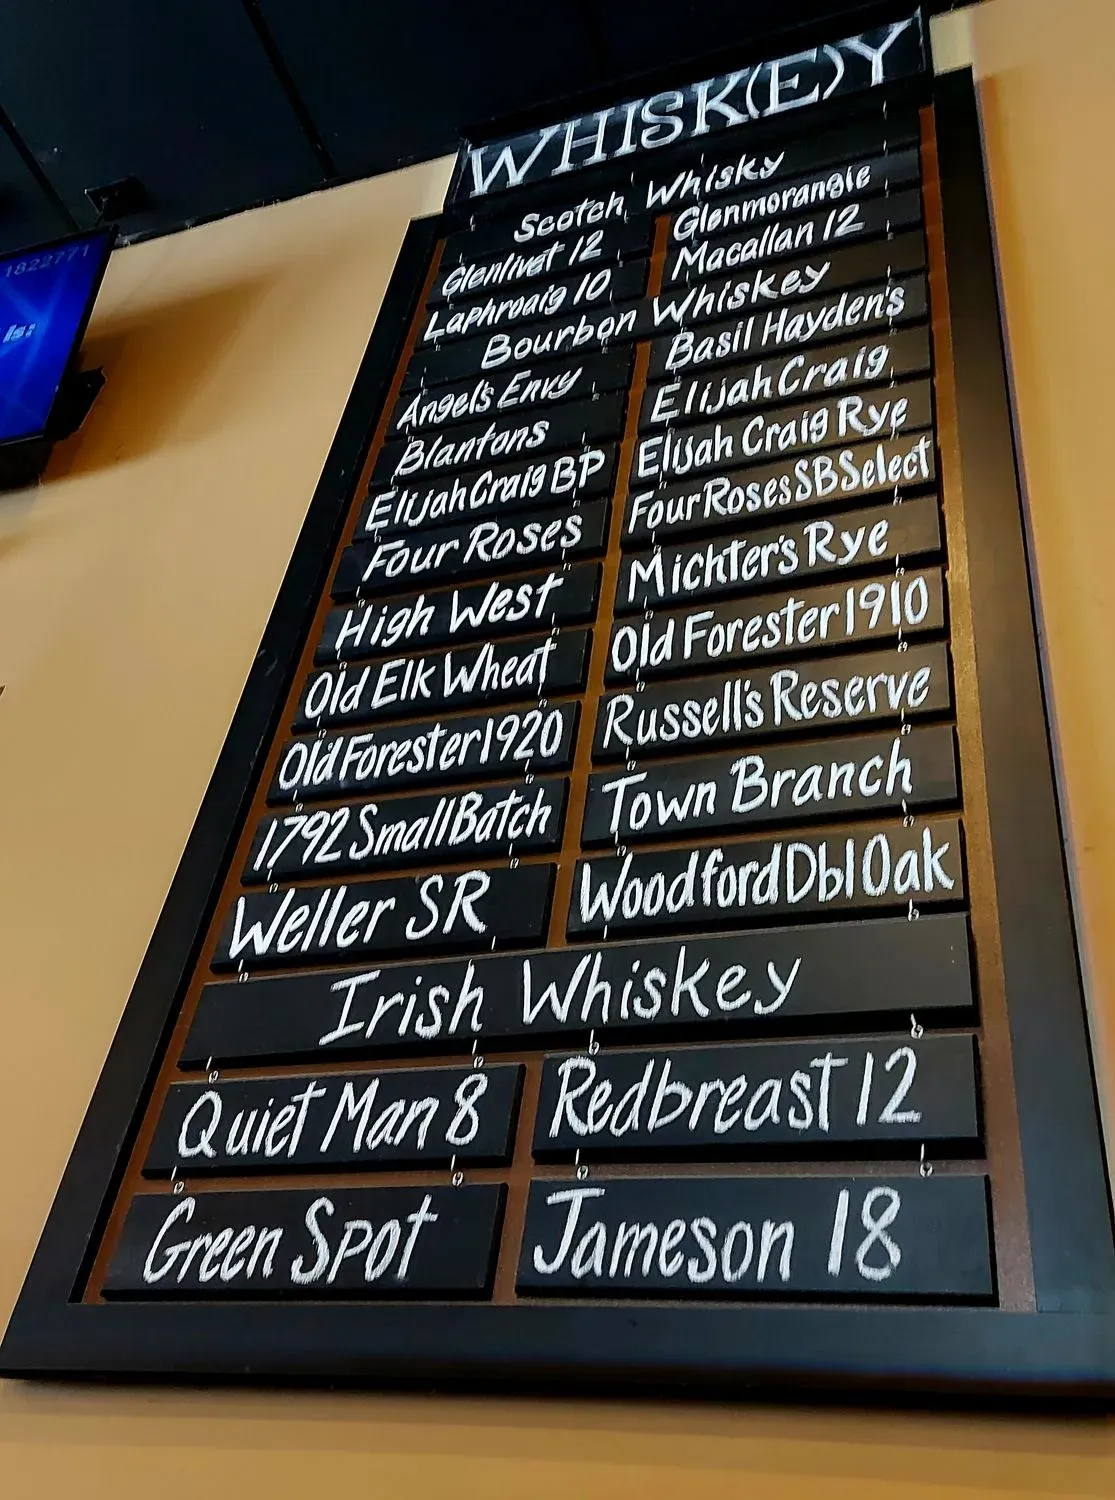 1822771
is:
WHISK(E)Y
Scotch Whisky
Glenlivet 12 Glenmorangie
Laphroaig 10 Macallan 12
Bourbon Whiskey
Angel's Envy Basil Hayden's
Blantons Elijah Craig
Elijah Craig BP Elijah Craig Rye
Four Roses Four Roses SB Select
High West Michter's Rye
Old Elk Wheat Old Forester 1910
Old Forester 1920 Russell's Reserve
1792 Small Batch Town Branch
Weller SR Woodford Dbl Oak
Irish Whiskey
Quiet Man 8 Redbreast 12
Green Spot Jameson 18